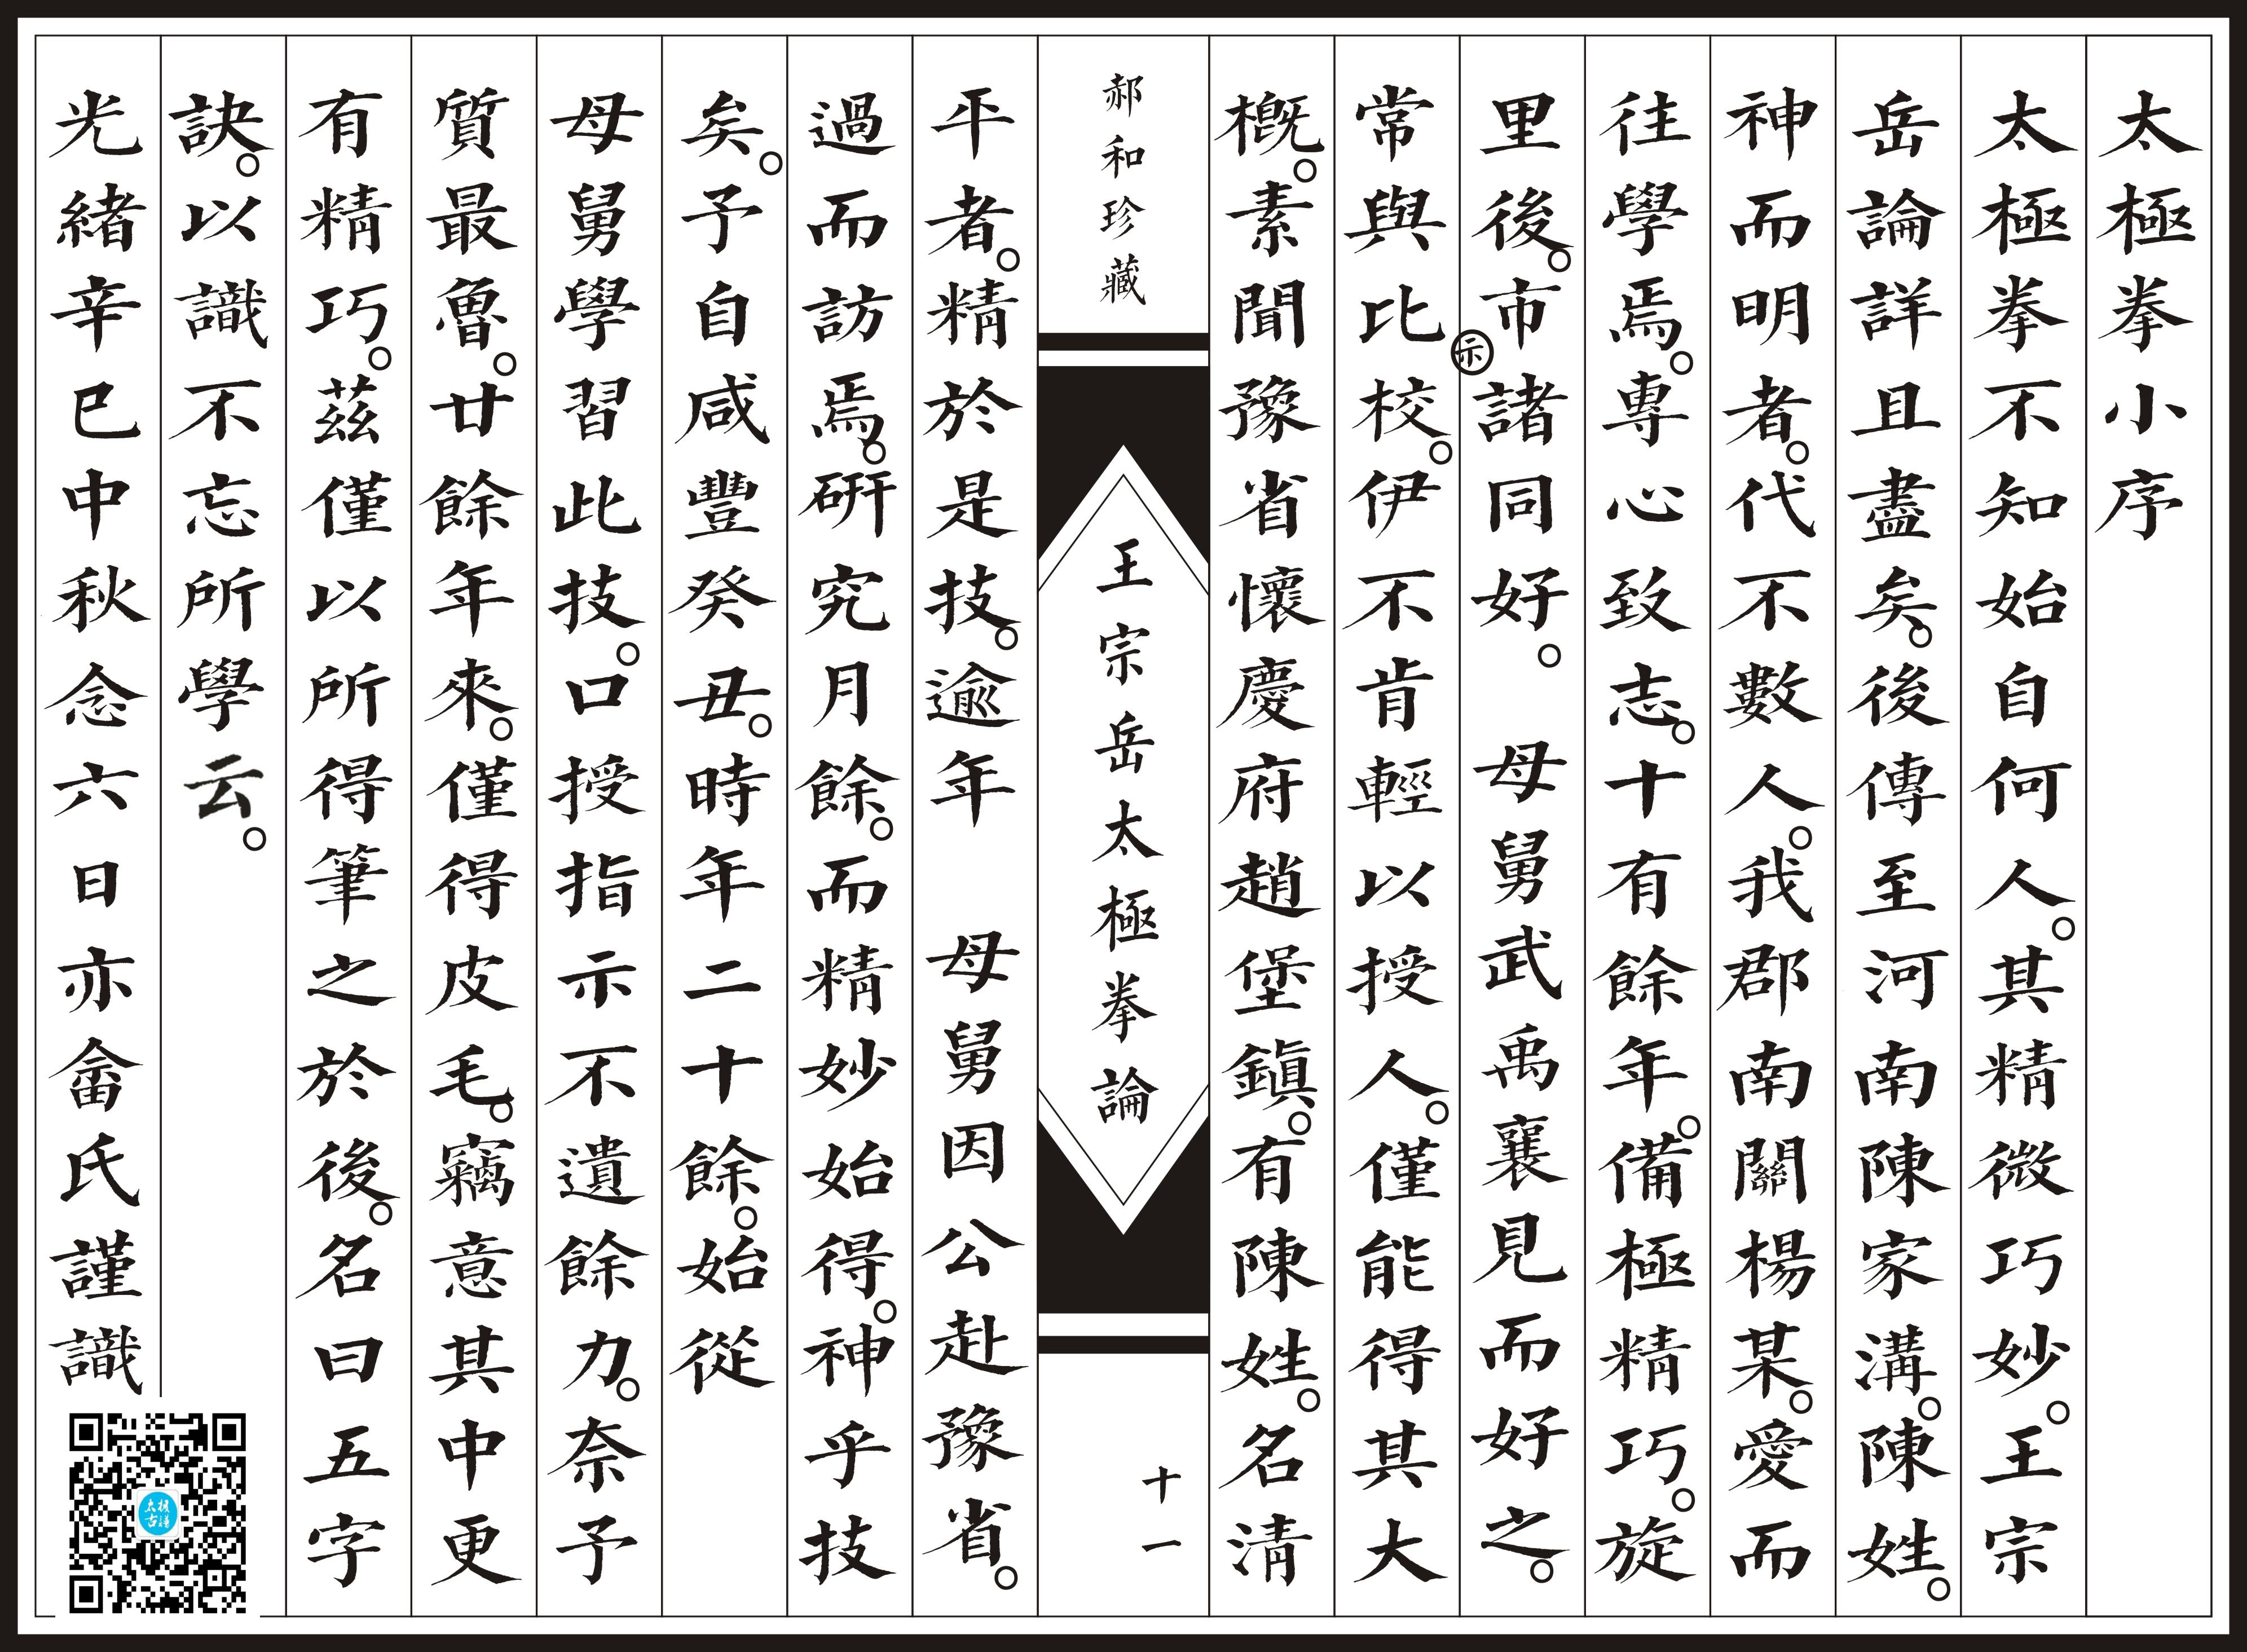 太極拳小序
太極拳不知始自何人。其精微巧妙。王宗
岳論詳且盡矣。後傳至河南陳家溝。陳姓。
神而明者。代不數人。我郡南關楊某。愛而
往學焉。專心致志。十有餘年。備極精巧。旋
里後。市諸同好。 母舅武禹襄見而好之。
示
常與比校。伊不肯輕以授人。僅能得其大
概。素聞豫省懷慶府趙堡鎮。有陳姓。名清
郝和珍藏
王宗岳太極拳論
十一
平者。精於是技。逾年 母舅因公赴豫省。
過而訪焉。研究月餘。而精妙始得。神乎技
矣。予自咸豐癸丑。時年二十餘。始從
母舅學習此技。口授指示不遺餘力。奈予
質最魯。廿餘年來。僅得皮毛。竊意其中更
有精巧。茲僅以所得筆之於後。名曰五字
訣。以識不忘所學云。
光緒辛巳中秋念六日亦畬氏謹識
太極
古譜